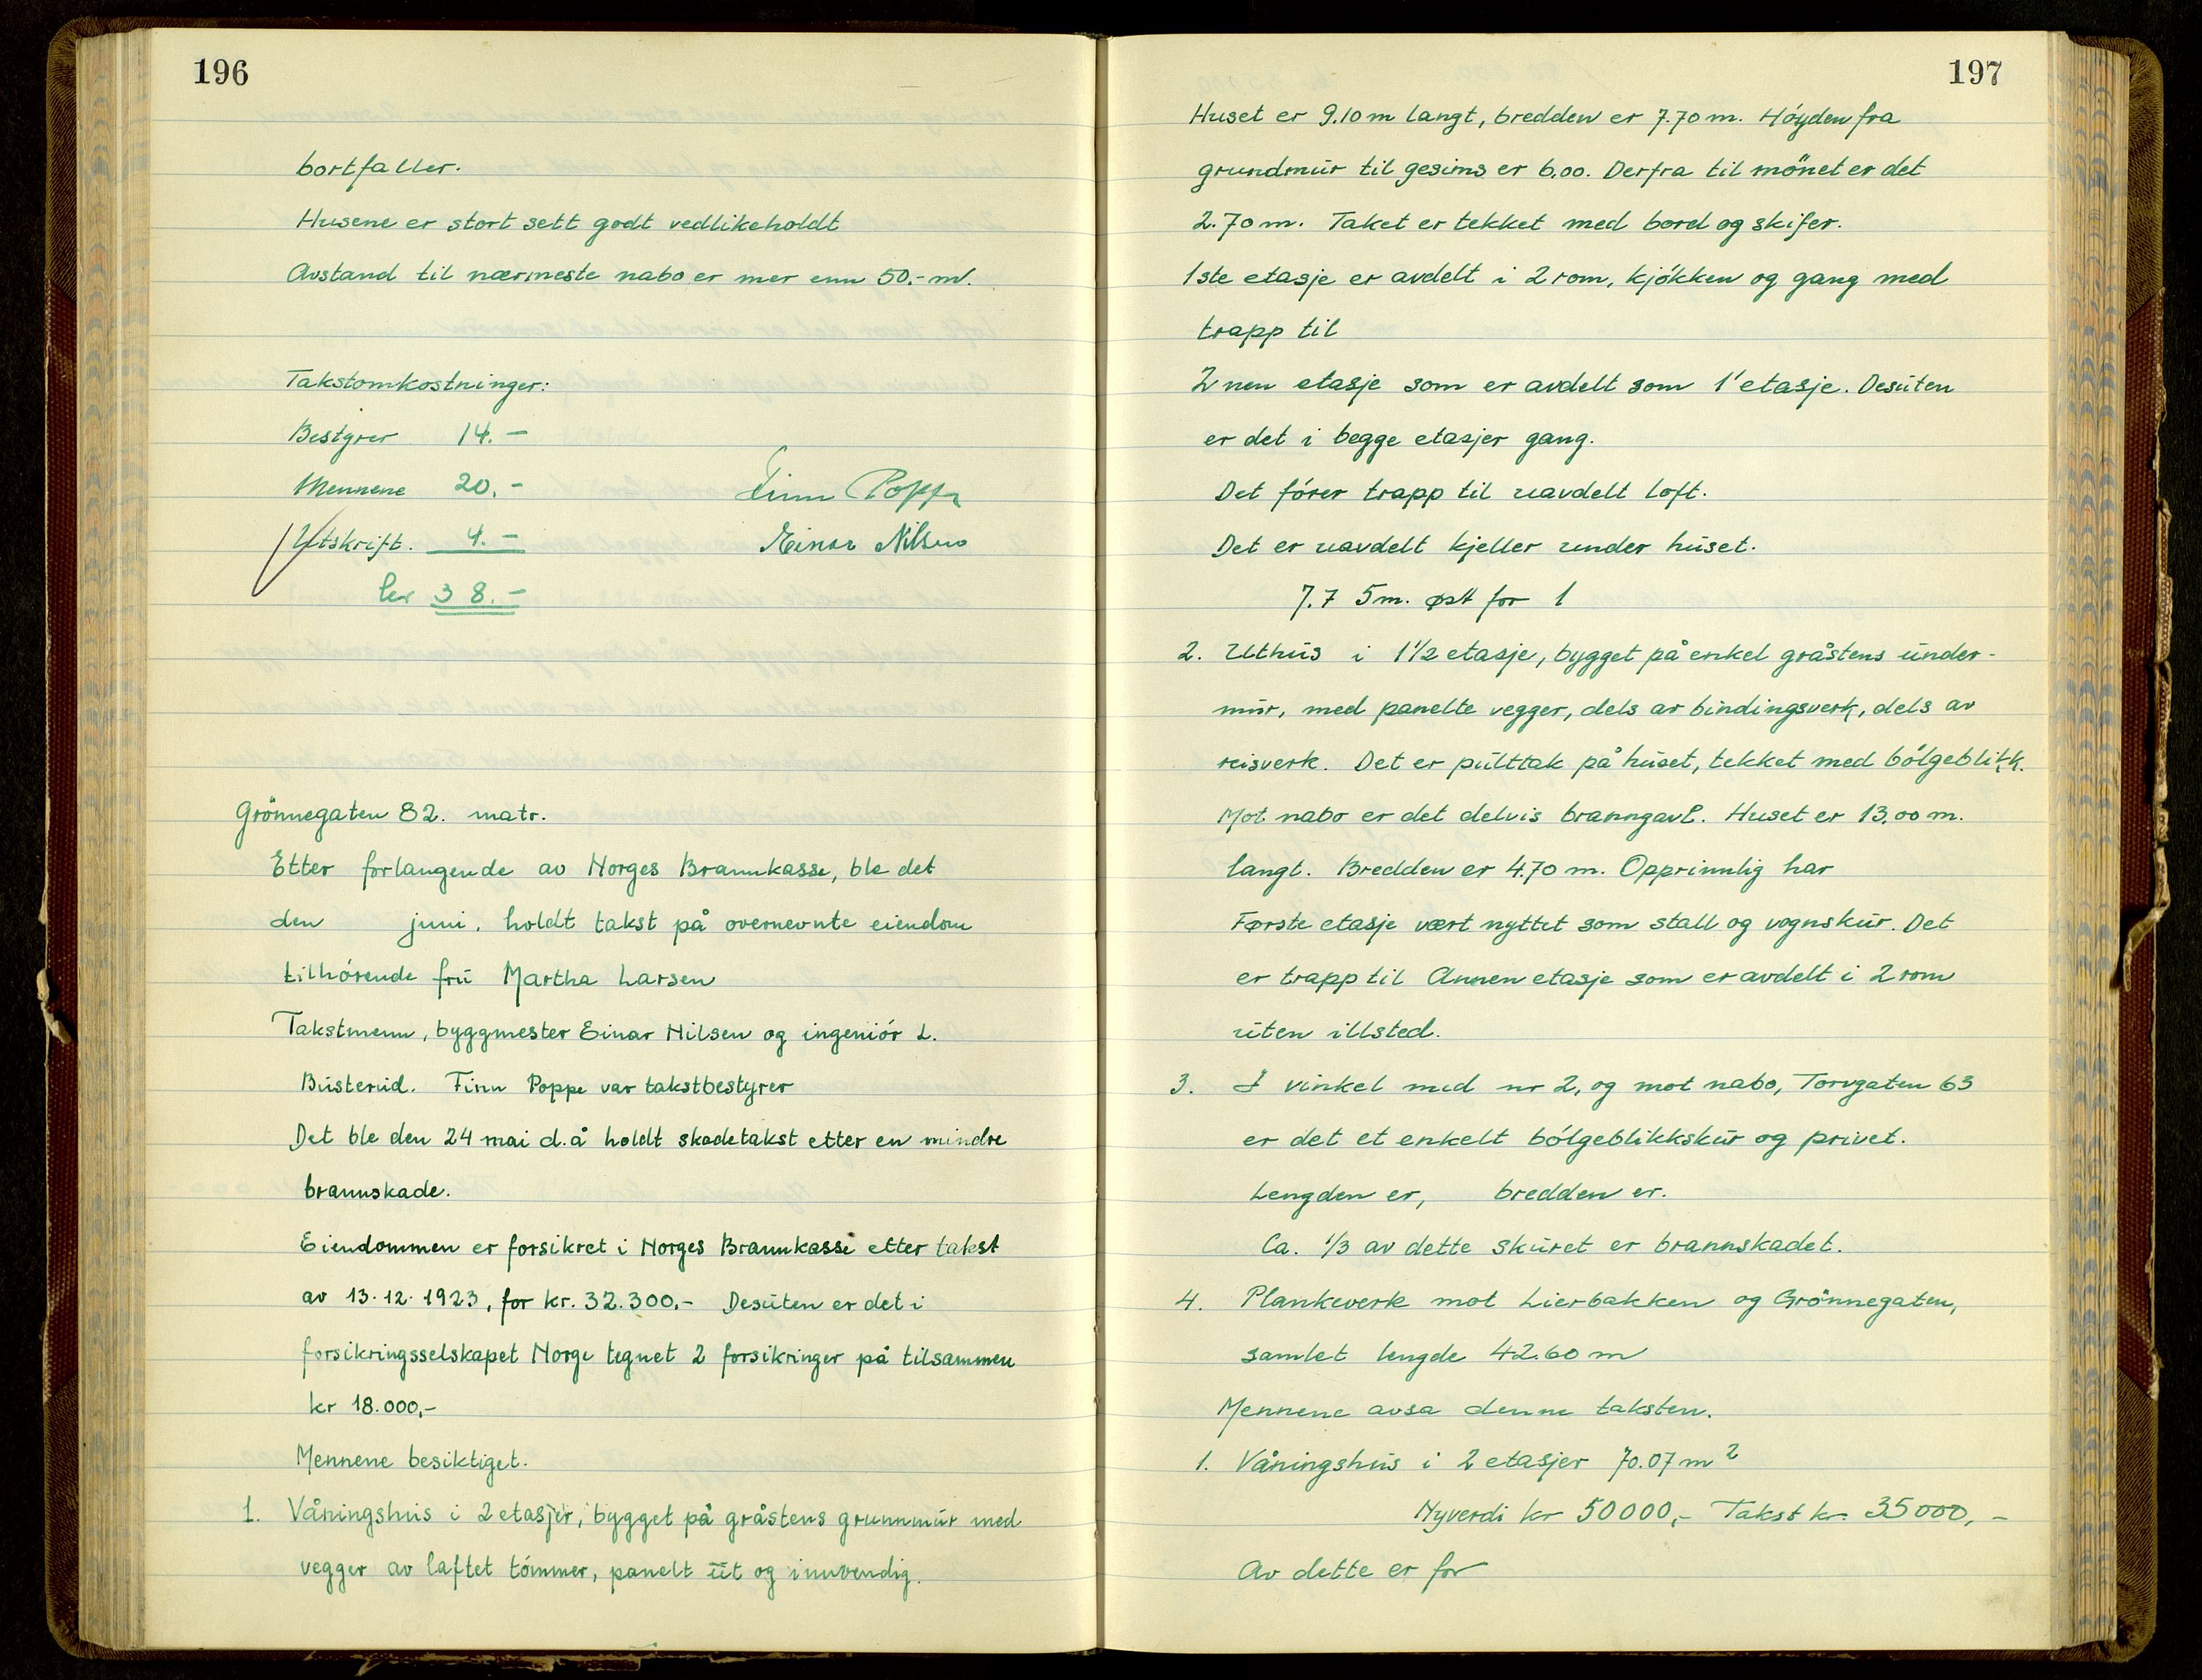 196
bortfaller.
Husene er stort sett godt vedlikeholdt
Avstand til nærmeste nabo er mer enn 50.- m.
Takstomkostninger:
Bestyrer 14.-
Mennene 20.- Finn Poppe
Utskrift. 4.- Einar Nilsen
kr 38.-
Grönnegaten 82. matr.
Etter forlangende av Norges Brannkasse, ble det
den juni, holdt takst på overnevnte eiendom
tilhórende frū Martha Larsen
Takstmenn, byggmester Einar Nilsen og ingeniór L.
Būsterud. Finn Poppe var takstbestyrer
Det ble den 24 mai d.å holdt skadetakst etter en mindre
brannskade.
Eiendommen er forsikret i Norges Brannkasse etter takst
av 13.12.1923, for kr. 32.300.- Desūten er det i
forsikringsselskapet Norge tegnet 2 forsikringer på tilsammen
kr 18.000,-
Mennene besiktiget.
1. Våningshus i 2 etasjer, bygget på gråstens grunnmūr med
vegger av laftet tómmer, panelt ūt og innvendig.
197
Huset er 9.10 m langt, bredden er 7.70 m. Hóyden fra
grundmūr til gesims er 6,00. Derfra til mönet er det
2.70 m. Taket er tekket med bord og skifer.
1ste etasje er avdelt i 2 rom, kjókken og gang med
trapp til
2 nen etasje som er avdelt som 1' etasje. Desūten
er det i begge etasjer gang.
Det fórer trapp til uavdelt loft.
Det er uavdelt kjeller under hūset.
7.75 m. øst for 1
2. Uthūs i 1 1/2 etasje, bygget på enkel gråstens ūnder-
mūr, med panelte vegger, dels av bindingsverk, dels av
reisverk. Det er pūlttak på hūset, tekket med bólgeblikk.
Mot nabo er det delvis branngavl. Huset er 13,00 m.
langt. Bredden er 4.70 m. Opprinnlig har
Første etasje vært nyttet som stall og vognskūr. Det
er trapp til Annen etasje som er avdelt i 2 rom
ūten illsted.
3. I vinkel med nr 2, og mot nabo, Torvgaten 63
er det et enkelt bólgeblikkskūr og privet.
Lengden er, bredden er.
Ca. 1/3 av dette skūret er brannskadet.
4. Plankeverk mot Lierbakken og Grönnegaten,
samlet lengde 42.60 m
Mennene avsa denne taksten.
1. Våningshūs i 2 etasjer 70.07 m²
Nyverdi kr 50000,- Takst kr. 35000,-
Av dette er for